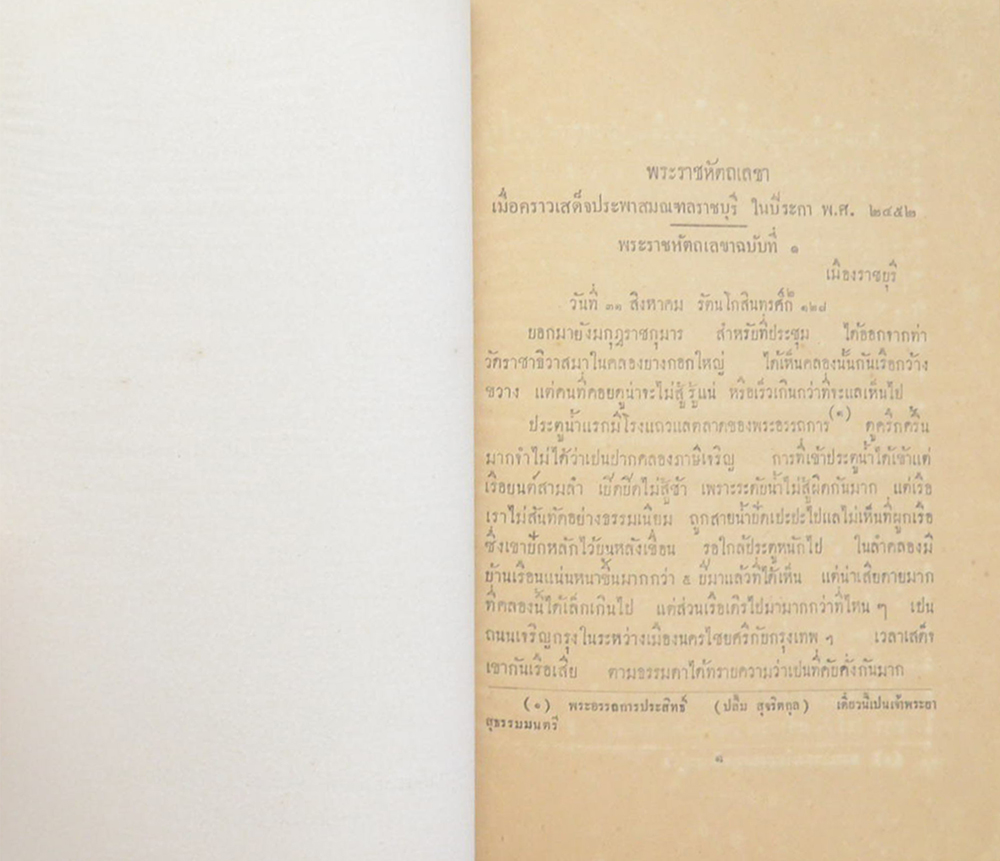 พระราชหัตถเลขา
เมื่อคราวเสด็จประพาสมณฑลราชบุรี ในปีระกา พ.ศ. ๒๔๕๒
พระราชหัตถเลขาฉบับที่ ๑
เมืองราชบุรี
วันที่ ๓๑ สิงหาคม รัตนโกสินทรศ๎ก ๑๒๘
บอกมายังมกุฎราชกุมาร สำหรับที่ประชุม ได้ออกจากท่า
วัดราชาธิวาสมาในคลองบางกอกใหญ่ ได้เห็นคลองนั้นกันเรือกว้าง
ขวาง แต่คนที่คอยดูน่าจะไม่สู้รู้แน่ หรือเร็วเกินกว่าที่จะแลเห็นไป
ประตูน้ำแรกมีโรงแถวแลตลาดของพระอรรถการ(๑) ดูครึกครื้น
มากจำไม่ได้ว่าเปนปากคลองภาษีเจริญ การที่เข้าประตูน้ำได้เข้าแต่
เรือยนต์สามลำ เบ็ดยืดไม่สู้ช้า เพราะระดับน้ำไม่สู้ผิดกันมาก แต่เรือ
เราไม่สันทัดอย่างธรรมเนียม ถูกสายน้ำปัดเปะปะไปแลไม่เห็นที่ผูกเรือ
ซึ่งเขาปักหลักไว้บนหลังเขื่อน รอใกล้ประตูหนักไป ในลำคลองมี
บ้านเรือนแน่นหนาขึ้นมากกว่า ๕ ปีมาแล้วที่ได้เห็น แต่น่าเสียดายมาก
ที่คลองนี้ได้เล็กเกินไป แต่ส่วนเรือเดิรไปมามากกว่าที่ไหน ๆ เปน
ถนนเจริญกรุงในระหว่างเมืองนครไชยศรีกับกรุงเทพ ฯ เวลาเสด็จ
เขากันเรือเสีย ตามธรรมดาได้ทราบความว่าเปนที่คับคั่งกันมาก
(๑) พระอรรถการประสิทธิ์ (ปลื้ม สุจริตกุล) เดี๋ยวนี้เปนเจ้าพระยา
สุธรรมมนตรี
๑